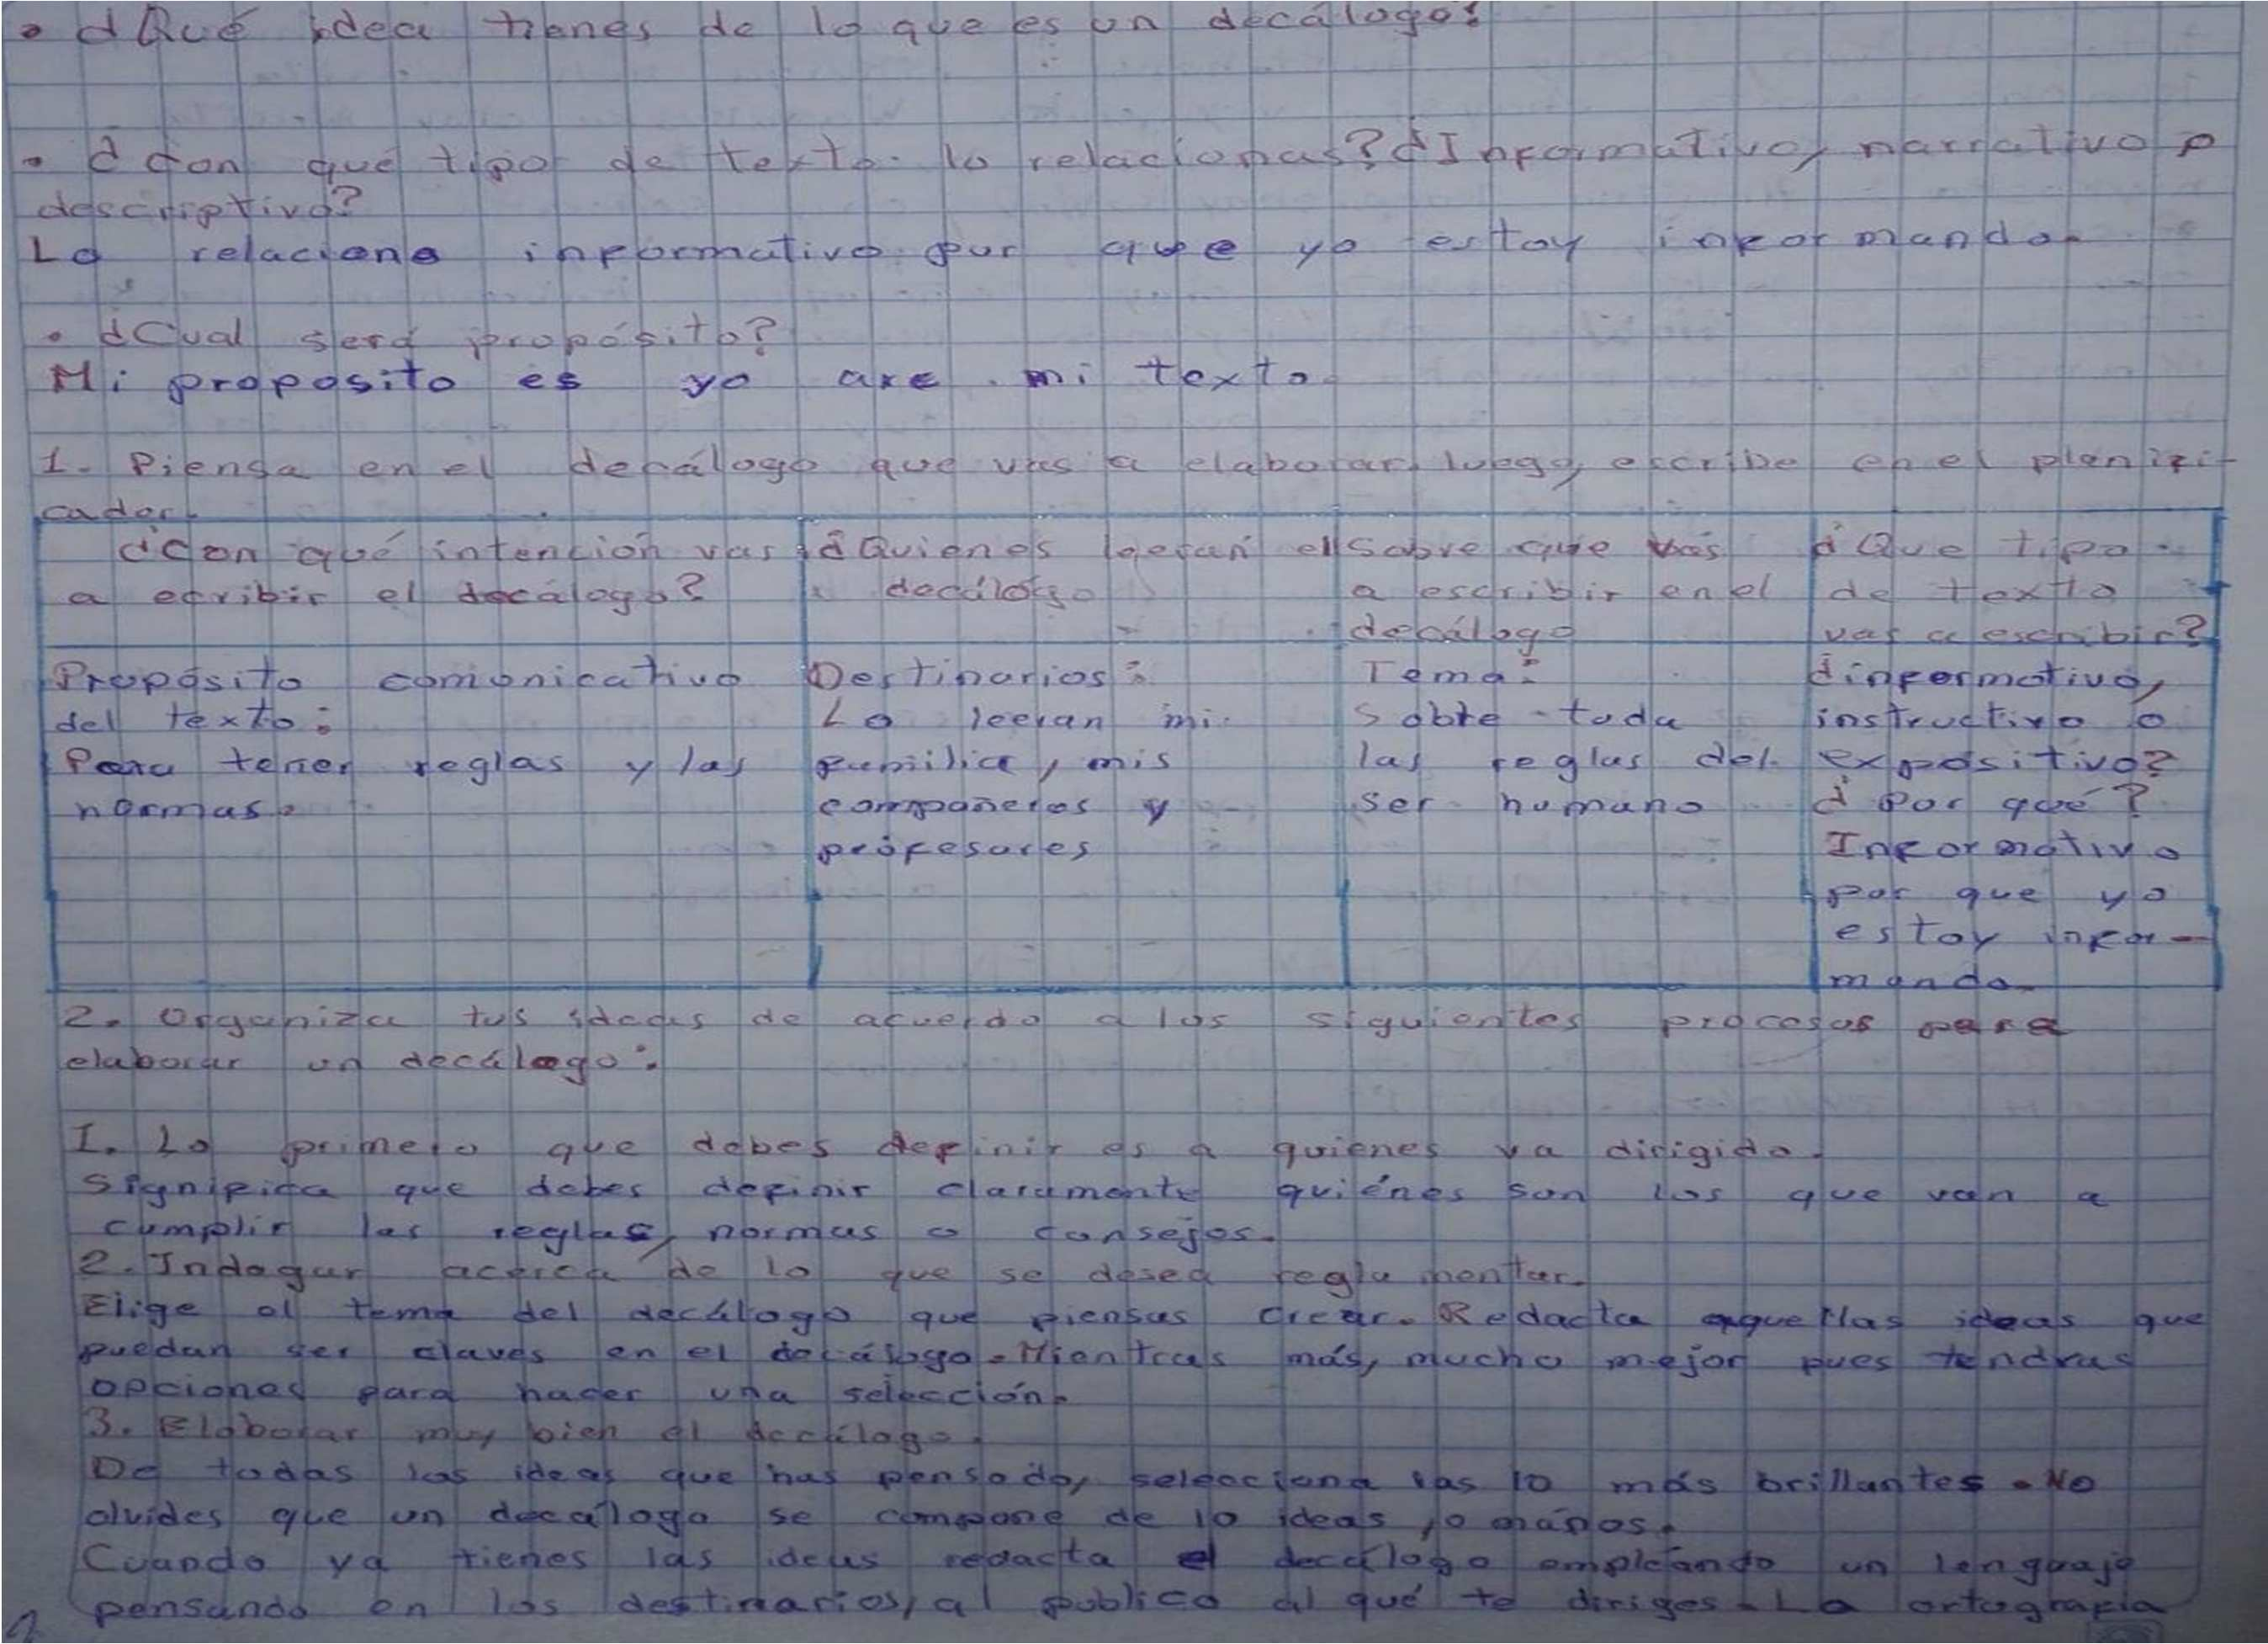 • ¿Qué idea tienes de lo que es un decálogo?
• ¿Con qué tipo de texto lo relacionas? ¿Informativo, narrativo o
descriptivo?
Lo relaciono informativo por que yo estoy informando.
• ¿Cual será propósito?
Mi proposito es yo are mi texto
1. Piensa en el decálogo que vas a elaborar, luego, escribe en el planifi-
cador.
¿Con qué intención vas
a ecribir el decálogo?
¿Quienes leeran el
decálogo
Sobre que vas
a escribir en el
decálogo
¿Que tipo
de texto
vas a escribir?
Propósito comonicativo
del texto:
Para tener reglas y las
normas.
Destinarios:
Lo leeran mi
familia, mis
compañeros y
profesores
Tema:
Sobre toda
las reglas del
ser humano
¿informativo,
instructivo o
expositivo?
¿Por qué?
Informativo
por que yo
estoy infor-
mando.
2. Organiza tus ideas de acuerdo a los siguientes procesos para
elaborar un decálogo:
I. Lo primero que debes definir es a quienes va dirigido.
Significa que debes definir claramente quiénes son los que van a
cumplir las reglas, normas o consejos.
2. Indagar acerca de lo que se desea reglamentar.
Elige el tema del decálogo que piensas crear. Redacta aquellas ideas que
puedan ser claves en el decálogo. Mientras más, mucho mejor pues tendras
opciones para hacer una selección.
3. Elaborar muy bien el decálogo.
De todas las ideas que has pensado, selecciona las 10 más brillantes. No
olvides que un decálogo se compone de 10 ideas,
Cuando ya tienes las ideas redacta el decálogo empleando un lenguaje
pensando en los destinarios, al publico al qué te diriges. La ortografia